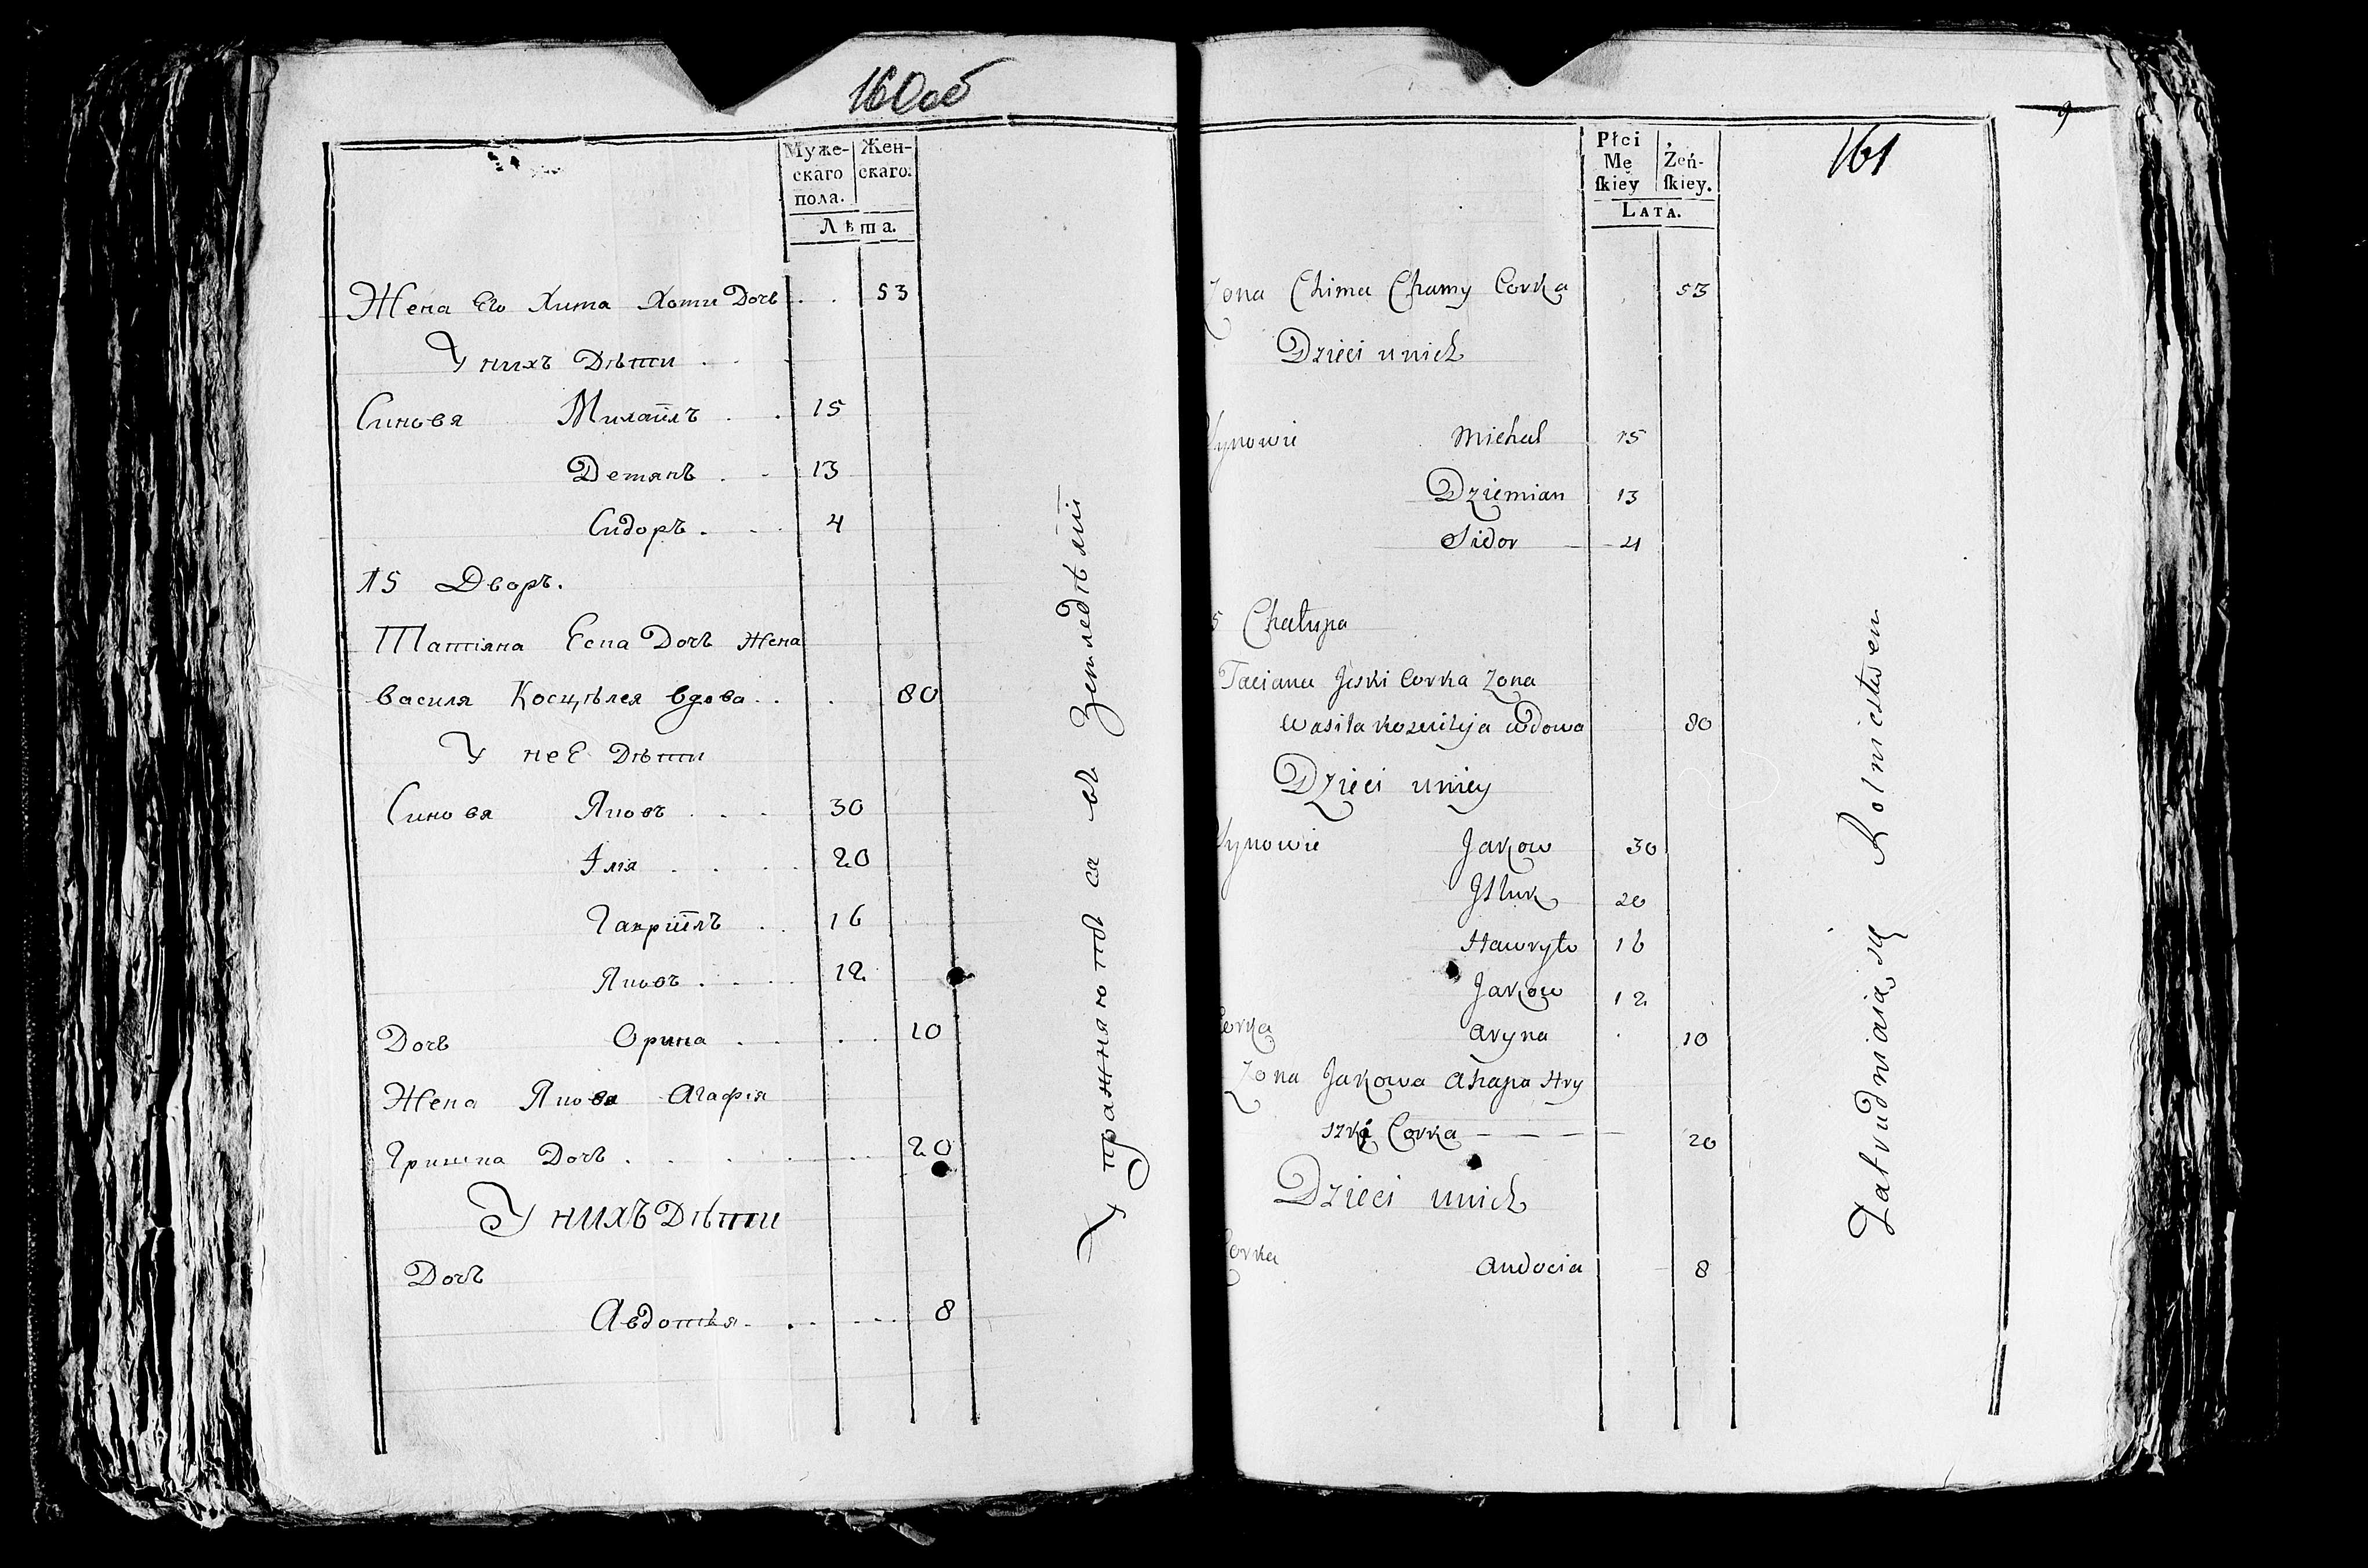 160об
Муже-
скаго
пола.
Жен-
скаго.
Лѣта.
Жена Его Хима Хоми Дочь . . 53
У нихъ Дѣти .
Синовя Михайлъ . . 15
Демянъ . . 13
Сидоръ . . 4
15 Дворъ.
Татіяна Еска Дочь Жена
Василя Косцѣлея вдова . . . 80
У неЕ Дѣти
Синовя Яковъ . . . 30
Ілія . . . 20
Гаврііілъ . . 16
Яковъ . . . . 12
Дочь Орина . . . . 10
Жена Якова Агафія
Гришка Дочь . . . . . . 20
У нихъ Дѣти
Дочь
Авдотья . . . . . 8
Упражняются въ Земледѣліи
9
161
Płci
Mę
ſkiey
Żeń-
ſkiey.
Lata.
Zona Chima Chamy Corka 53
Dzieci unich
Synowie Michał 15
Dziemian 13
Sidor 4
5 Chałupa
Taciana Jeski Corka Zona
Wasila wdowa 80
Dzieci uniey
Synowie Jakow 30
20
Hawryło 16
Jakow 12
Corka Aryna 10
Zona Jakowa Ahapa Hry
szki Corka — — — — 20
Dzieci unich
Corka Audocia 8
Zatrudniaią się Rolnictwen